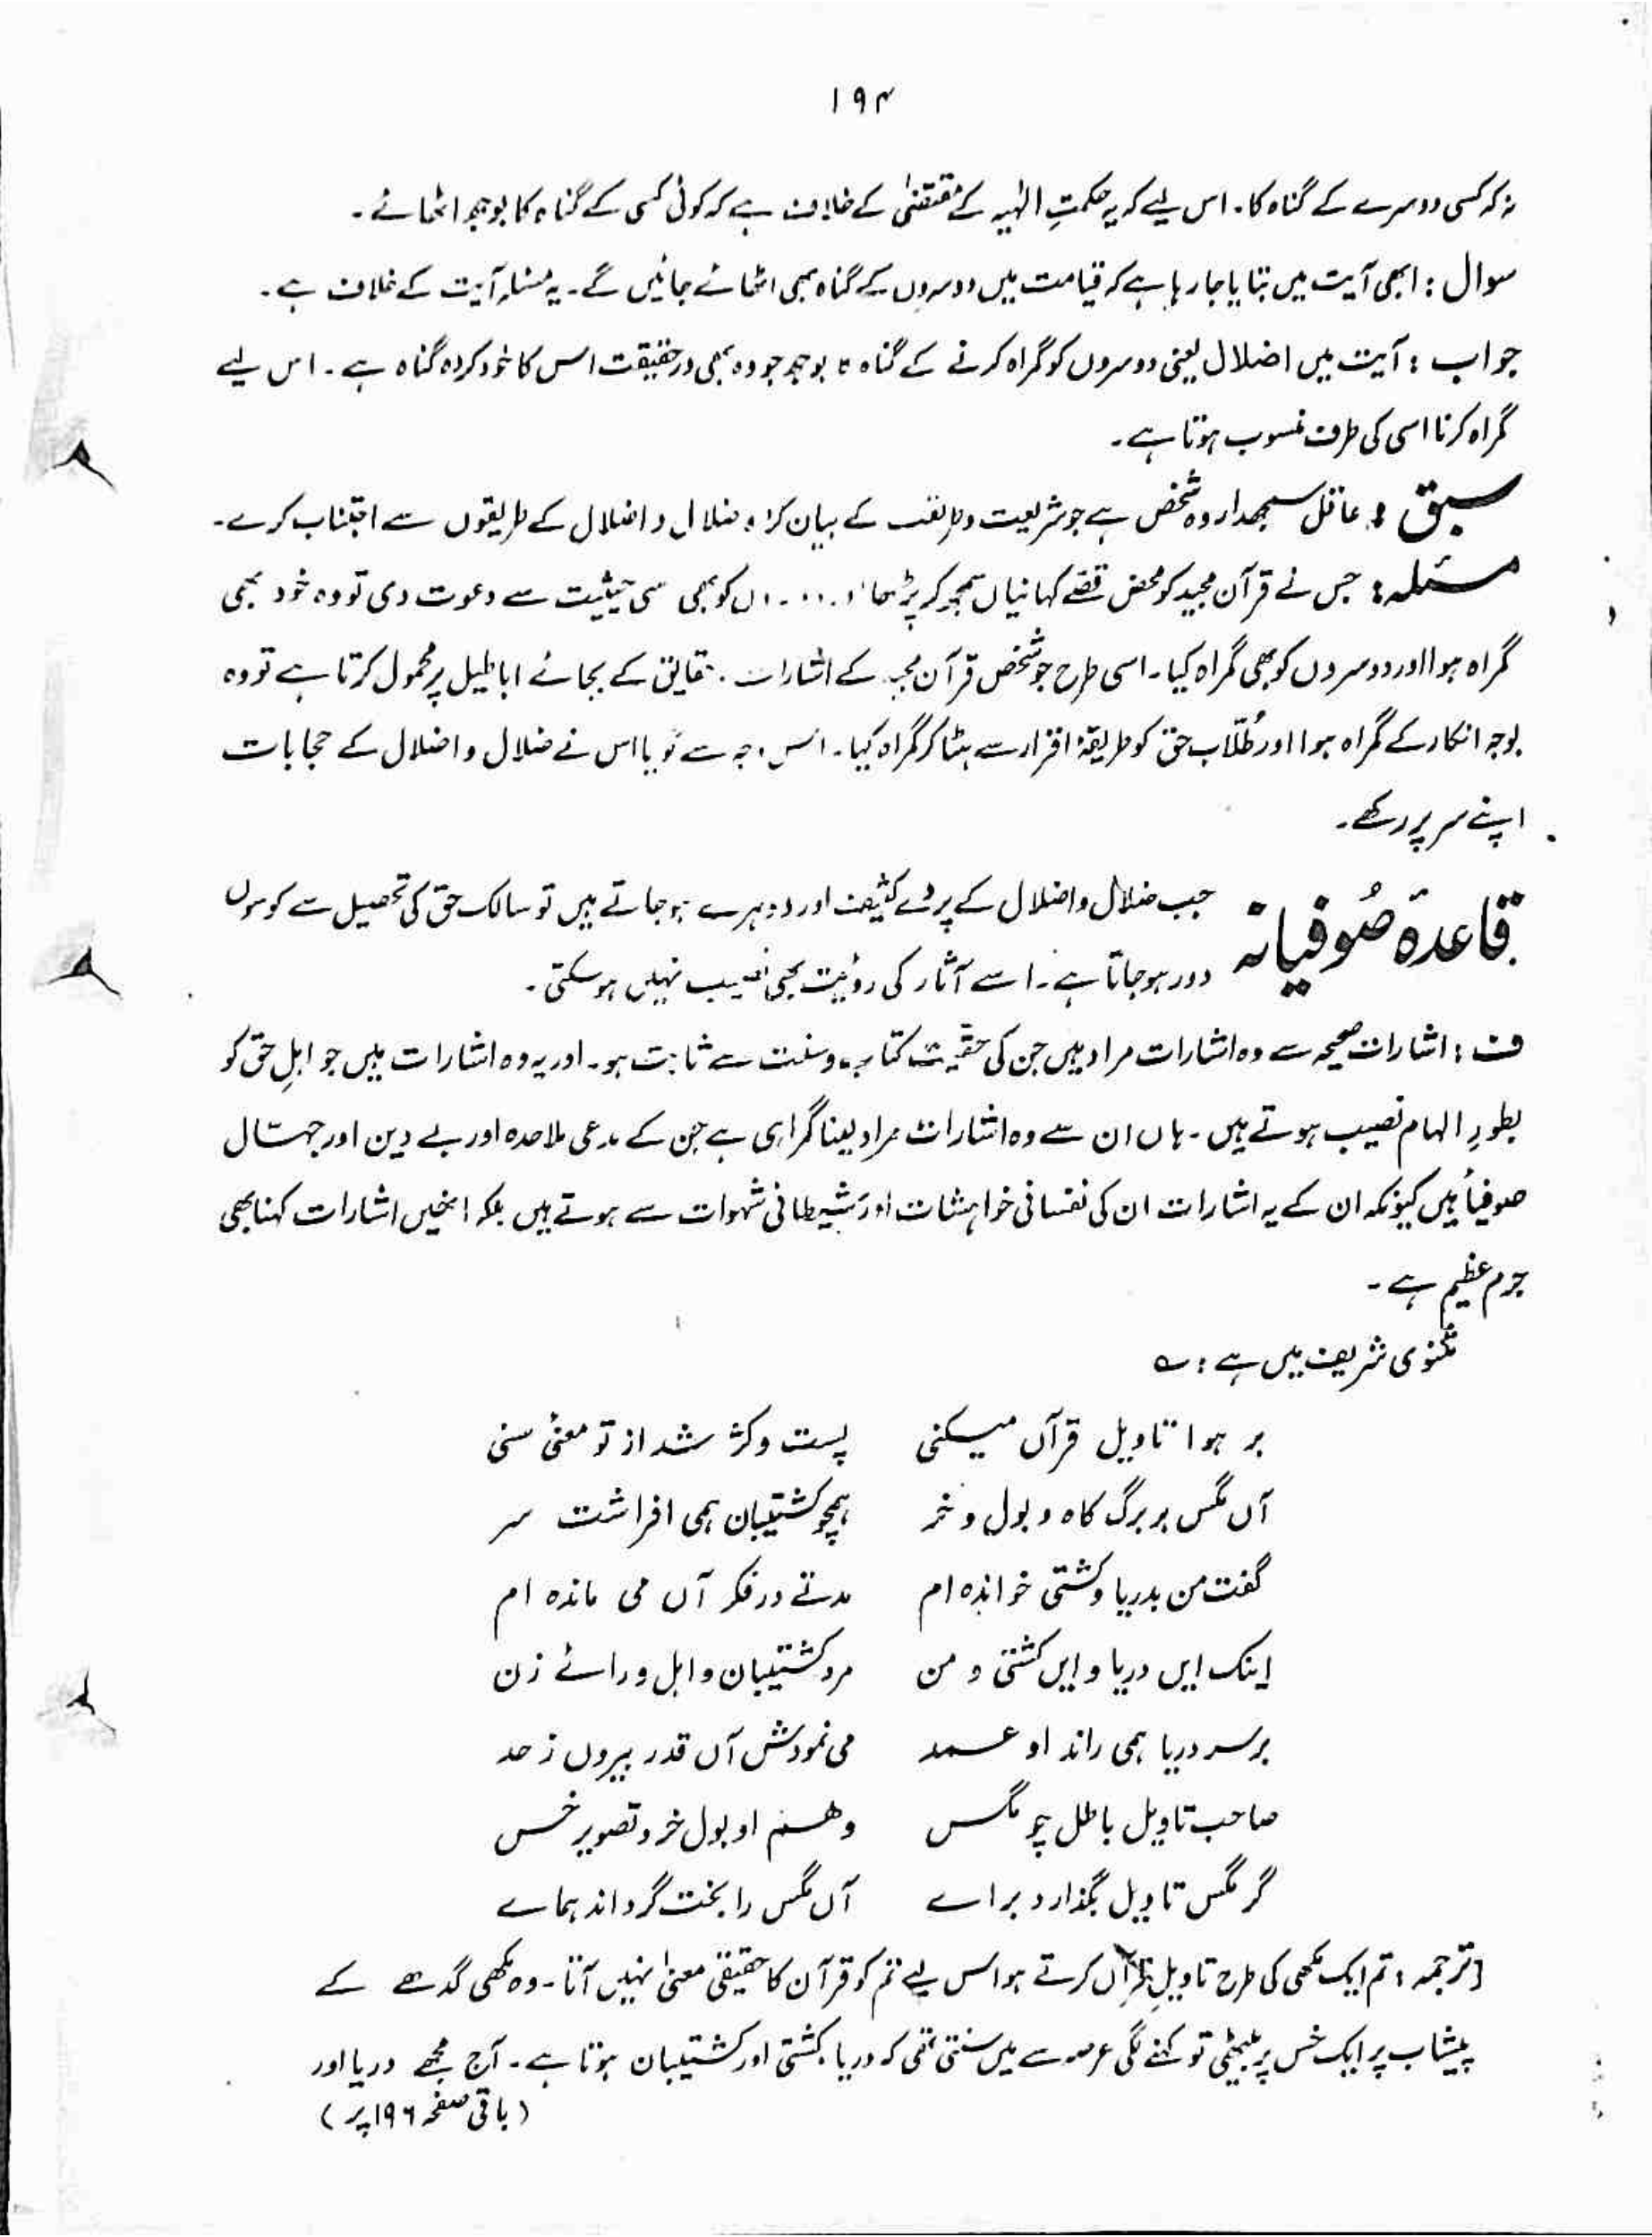 ۱۹۴
نہ کہ کسی دوسرے کے گناہ کا۔ اس لیے کہ یہ حکمتِ الٰہیہ کے مقتضیٰ کے خلاف ہے کہ کوئی کسی کے گناہ کا بوجھ اٹھائے۔
سوال : ابھی آیت میں بتایا جا رہا ہے کہ قیامت میں دوسروں کے گناہ بھی اٹھائے جائیں گے۔ یہ منشاء آیت کے خلاف ہے۔
جواب : آیت میں اضلال یعنی دوسروں کو گمراہ کرنے کے گناہ کا بوجھ جو وہ بھی درحقیقت اس کا خود کردہ گناہ ہے۔ اس لیے
گمراہ کرنا اسی کی طرف منسوب ہوتا ہے۔
سبق : عاقل سمجھدار وہ شخص ہے جو شریعت و طریقت کے بیان کردہ ضلال و اضلال کے طریقوں سے اجتناب کرے۔
مسئلہ : جس نے قرآن مجید کو محض قصے کہانیاں سمجھ کر پڑھا کو بھی سی حیثیت سے دعوت دی تو وہ خود بھی
گمراہ ہوا اور دوسروں کو بھی گمراہ کیا۔ اسی طرح جو شخص قرآن مجید کے اشارات حقایق کے بجائے اباطیل پر محمول کرتا ہے تو وہ
بوجہ انکار کے گمراہ ہوا اور طُلّاب حق کو طریقۂ اقرار سے ہٹا کر گمراہ کیا۔ اس وجہ سے گویا اس نے ضلال و اضلال کے حجابات
اپنے سر پر رکھے۔
قاعدہ صُوفیانہ جب ضلال و اضلال کے پردے کثیف اور دوہرے ہو جاتے ہیں تو سالک حق کی تحصیل سے کوسوں
دور ہو جاتا ہے۔ اسے آثار کی رؤیت بھی نصیب نہیں ہو سکتی۔
ف : اشارات صحیحہ سے وہ اشارات مراد ہیں جن کی حقیّت کتاب و سنت سے ثابت ہو۔ اور یہ وہ اشارات ہیں جو اہلِ حق کو
بطورِ الہام نصیب ہوتے ہیں۔ ہاں ان سے وہ اشارات مراد لینا گمراہی ہے جن کے مدعی ملاحدہ اور بے دین اور جہّال
صوفیاء ہیں کیونکہ ان کے یہ اشارات ان کی نفسانی خواہشات اور شیطانی شہوات سے ہوتے ہیں بلکہ انھیں اشارات کہنا بھی
جرم عظیم ہے۔
مثنوی شریف میں ہے : ؎
بر ہوا تاویل قرآں میکنی پست و کژ شد از تو معنیٔ سنی
آں مگس بر برگ کاہ و بول و خر ہمچو کشتیبان ہمی افراشت سر
گفت من بدریا و کشتی خواندہ ام مدتے در فکر آں می ماندہ ام
اینک ایں دریا و ایں کشتی و من مرد کشتیبان و اہل و رائے زن
برسر دریا ہمی راند او عمد می نمودش آں قدر بیروں ز حد
صاحب تاویل باطل چو مگس وہم او بول خر و تصویر خس
گر مگس تاویل بگذارد براے آں مگس را بخت گرداند ہماے
[ ترجمہ : تم ایک مکھی کی طرح تاویلِ قرآں کرتے ہو اس لیے تم کو قرآن کا حقیقی معنیٰ نہیں آتا۔ وہ مکھی گدھے کے
پیشاب پر ایک خس پر بیٹھی تو کہنے لگی عرصہ سے میں سنتی تھی کہ دریا، کشتی اور کشتیبان ہوتا ہے۔ آج مجھے دریا اور
( باقی صفحہ ۱۹۶ پر )